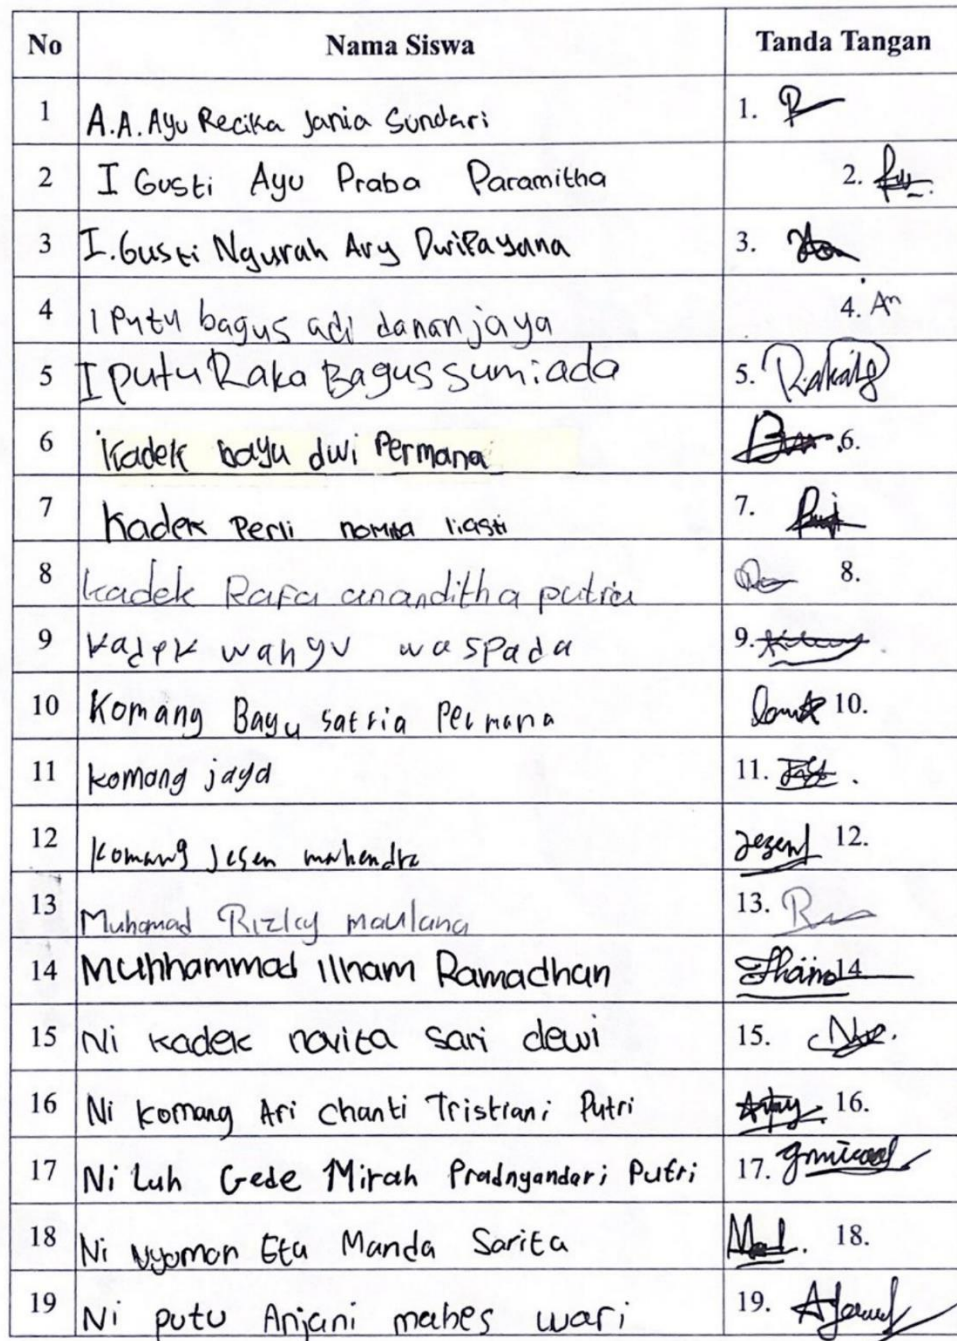 No Nama Siswa Tanda Tangan
1 A.A. Ayu Recika Jania Sundari 1.
2 I Gusti Ayu Praba Paramitha 2.
3 I. Gusti Ngurah Ary DwiPayana 3.
4 I Putu bagus adi dananjaya 4. An
5 I putu Raka Bagus sumiada 5.
6 Kadek bayu dwi Permana 6.
7 Kadek Perli nomita liasti 7.
8 kadek Rafa ananditha putra 8.
9 Kadek wahyu waspada 9.
10 Komang Bayu satria Permana 10.
11 komang jaya 11.
12 Komang Jesen mahendra jezen 12.
13 Muhamad Rizky maulana 13.
14 Muhhammad ilham Ramadhan 14
15 Ni kadek novita sari dewi 15.
16 Ni komang Ari chanti Tristiani Putri 16.
17 Ni Luh Gede Mirah Pradnyandari Putri 17.
18 Ni Nyoman Eta Manda Sarita 18.
19 Ni putu Anjani mahes wari 19.